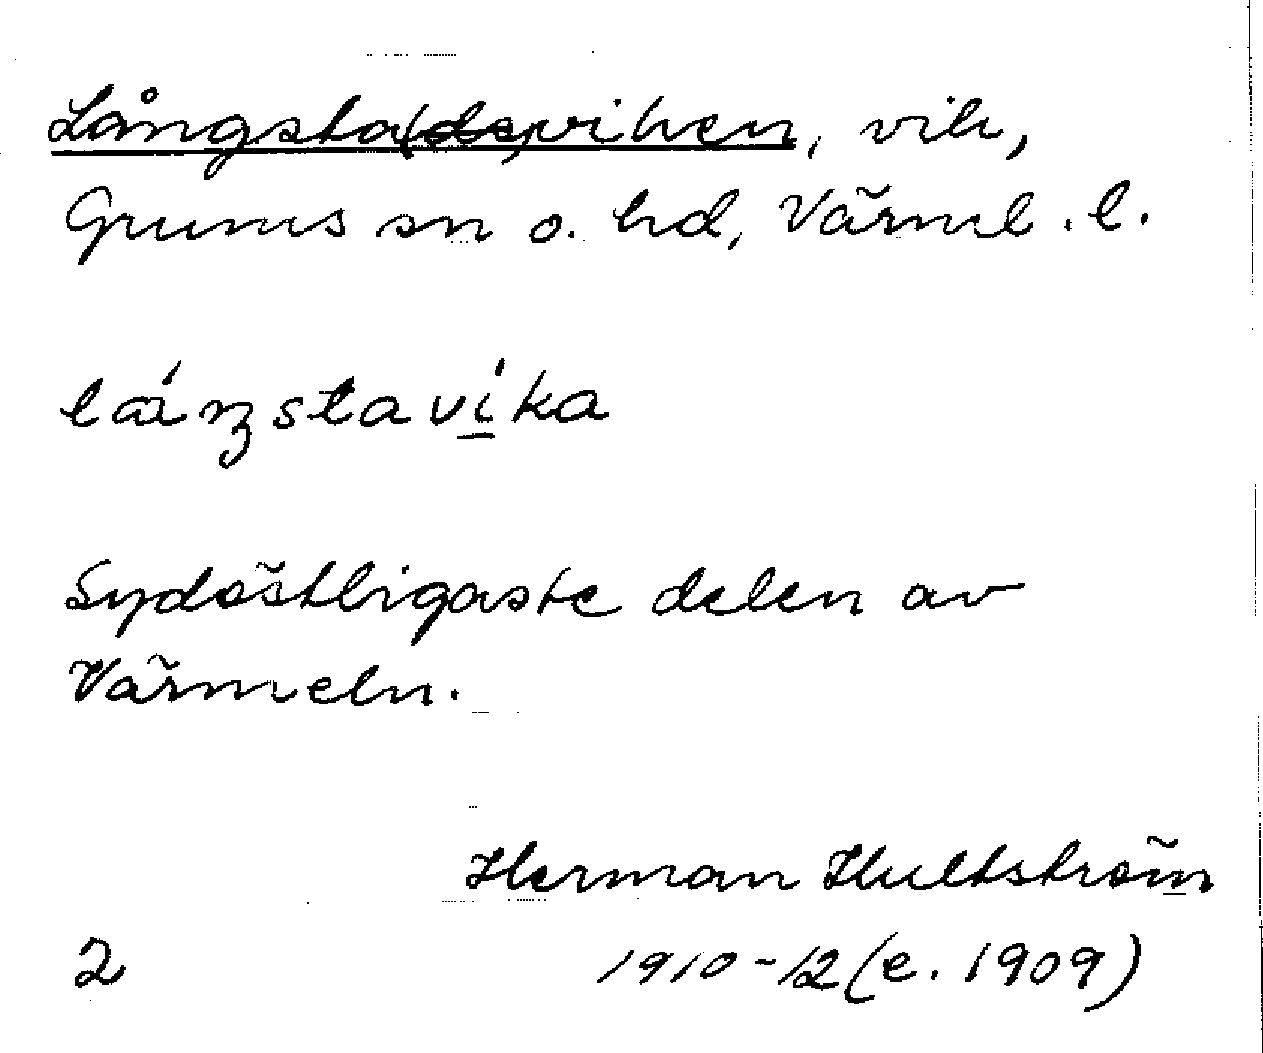 Långsta(ds)viken, vik,
Grums sn o. hd, Värml. l.
Sydöstligaste delen av
Värmeln.
Herman Hultström
2 1910-12 (e. 1909)